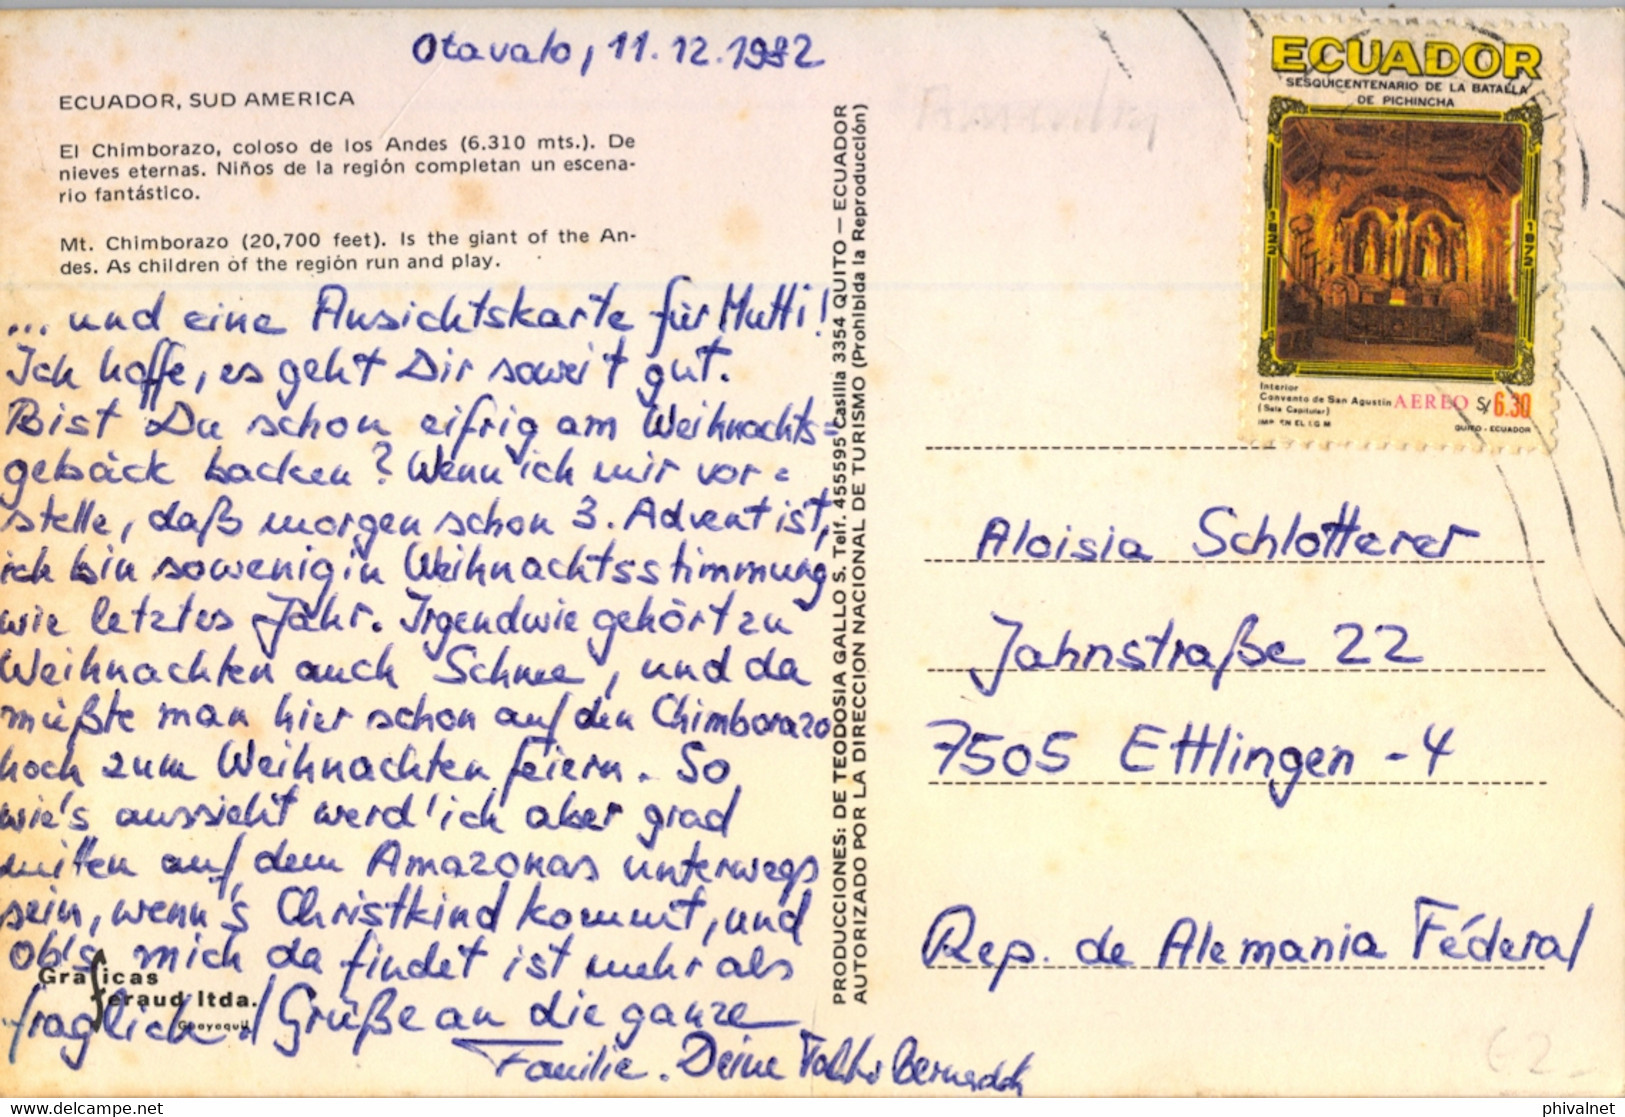 Otavalo, 11.12.1982
ECUADOR, SUD AMERICA
El Chimborazo, coloso de los Andes (6.310 mts.). De
nieves eternas. Niños de la región completan un escena-
rio fantástico.
Mt. Chimborazo (20,700 feet). Is the giant of the An-
des. As children of the región run and play.
... und eine Ansichtskarte für Mutti!
Ich hoffe, es geht Dir soweit gut.
Bist Du schon eifrig am Weihnachts=
gebäck backen? Wenn ich mir vor=
stelle, daß morgen schon 3. Advent ist,
ich bin sowenig in Weihnachtsstimmung
wie letztes Jahr. Irgendwie gehört zu
Weihnachten auch Schnee, und da
müßte man hier schon auf den Chimborazo
hoch zum Weihnachten feiern. So
wie's aussieht werd' ich aber grad
mitten auf dem Amazonas unterwegs
sein, wenn's Christkind kommt, und
ob's mich da findet ist mehr als
fraglich! Grüße an die ganze
Familie. Deine Bernadett
Graficas
feraud ltda.
Guayaquil
PRODUCCIONES: DE TEODOSIA GALLO S. Telf. 455595 Casilla 3354 QUITO — ECUADOR
AUTORIZADO POR LA DIRECCION NACIONAL DE TURISMO (Prohibida la Reproducción)
ECUADOR
SESQUICENTENARIO DE LA BATALLA
DE PICHINCHA
1822
1972
Interior
Convento de San Agustin
(Sala Capitular)
AEREO S/6.30
IMP. EN EL I.G.M
QUITO - ECUADOR
Aloisia Schlotterer
Jahnstraße 22
7505 Ettlingen -4
Rep. de Alemania Féderal
phivalnet